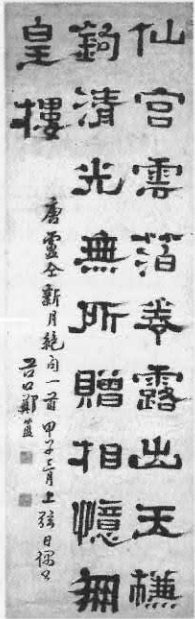 仙宮雲箔卷露出玉簾
鉤清光無所贈相憶鳳
皇樓
唐盧仝新月絕句一首 甲子三月上弦日偶書
谷口鄭簠